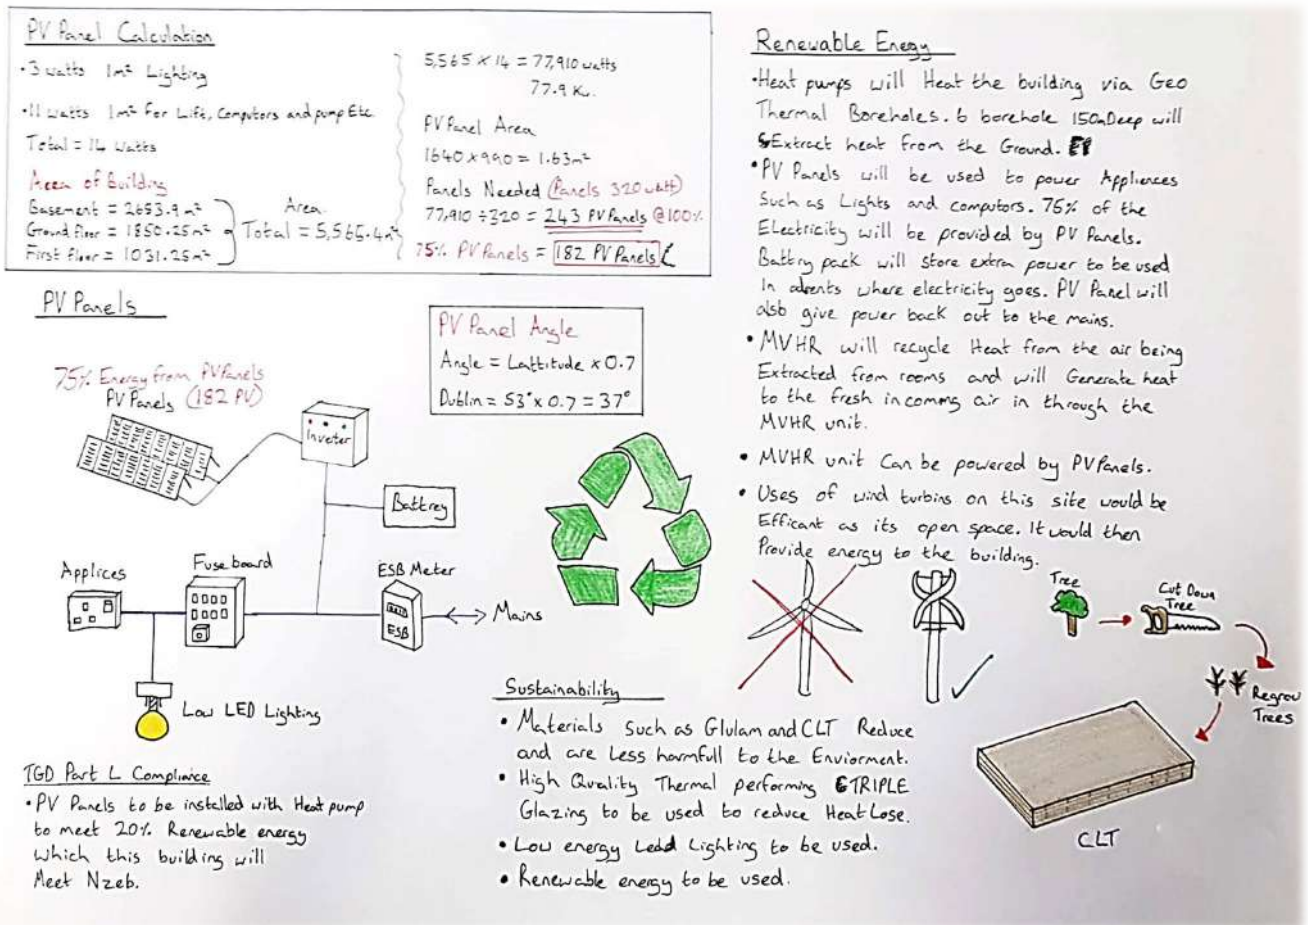 PV Panel Calculation
• 3 watts 1m² Lighting
• 11 watts 1m² for Lift, Computors and pump Etc.
Total = 14 watts
Area of Building
Basement = 2683.9m²
Ground floor = 1850.25m²
First floor = 1031.25m²
Area
Total = 5,565.4m²
5,565 x 14 = 77,910 watts
77.9 Kw.
PV Panel Area
1640 x 990 = 1.63m²
Panels Needed (Panels 320 watt)
77,910 ÷ 320 = 243 PV Panels @ 100%
75% PV Panels = 182 PV Panels
PV Panels
75% Energy from PV Panels
PV Panels (182 PV)
Inverter
Battrey
Applices
Fuse board
ESB Meter
ESB
Mains
Low LED Lighting
PV Panel Angle
Angle = Lattitude x 0.7
Dublin = 53° x 0.7 = 37°
TGD Part L Complince
• PV Panels to be installed with Heat pump
to meet 20% Renewable energy
which this building will
Meet Nzeb.
Sustainability
• Materials Such as Glulam and CLT Reduce
and are Less harmfull to the Enviorment.
• High Quality Thermal performing TRIPLE
Glazing to be used to reduce Heat Lose.
• Low energy Ledd Lighting to be used.
• Renewable energy to be used.
Renewable Energy
• Heat pumps will Heat the building via Geo
Thermal Boreholes. 6 borehole 150m Deep will
Extract heat from the Ground.
• PV Panels will be used to power Appliences
Such as Lights and computors. 75% of the
Electricity will be provided by PV Panels.
Battry pack will store extra power to be used
In where electricity goes. PV Panel will
also give power back out to the mains.
• MVHR will recycle Heat from the air being
Extracted from rooms and will Generate heat
to the fresh incomng air in through the
MVHR unit.
• MVHR unit Can be powered by PV Panels.
• Uses of wind turbins on this site would be
Efficant as its open space. It would then
Provide energy to the building.
Tree
Cut Down
Tree
Regrow
Trees
CLT